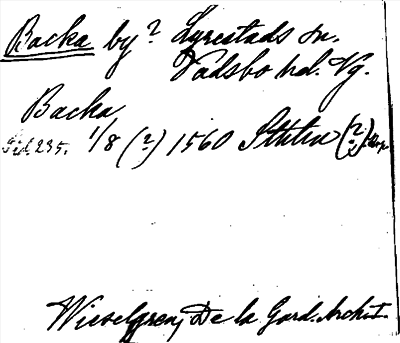 Backa by? Lyrestads sn.
Vadsbo hd. Vg.
Backa
Sid. 235. 1/8 (?) 1560 Sthlm (?)
Wieselgren, De la Gard. Archit.